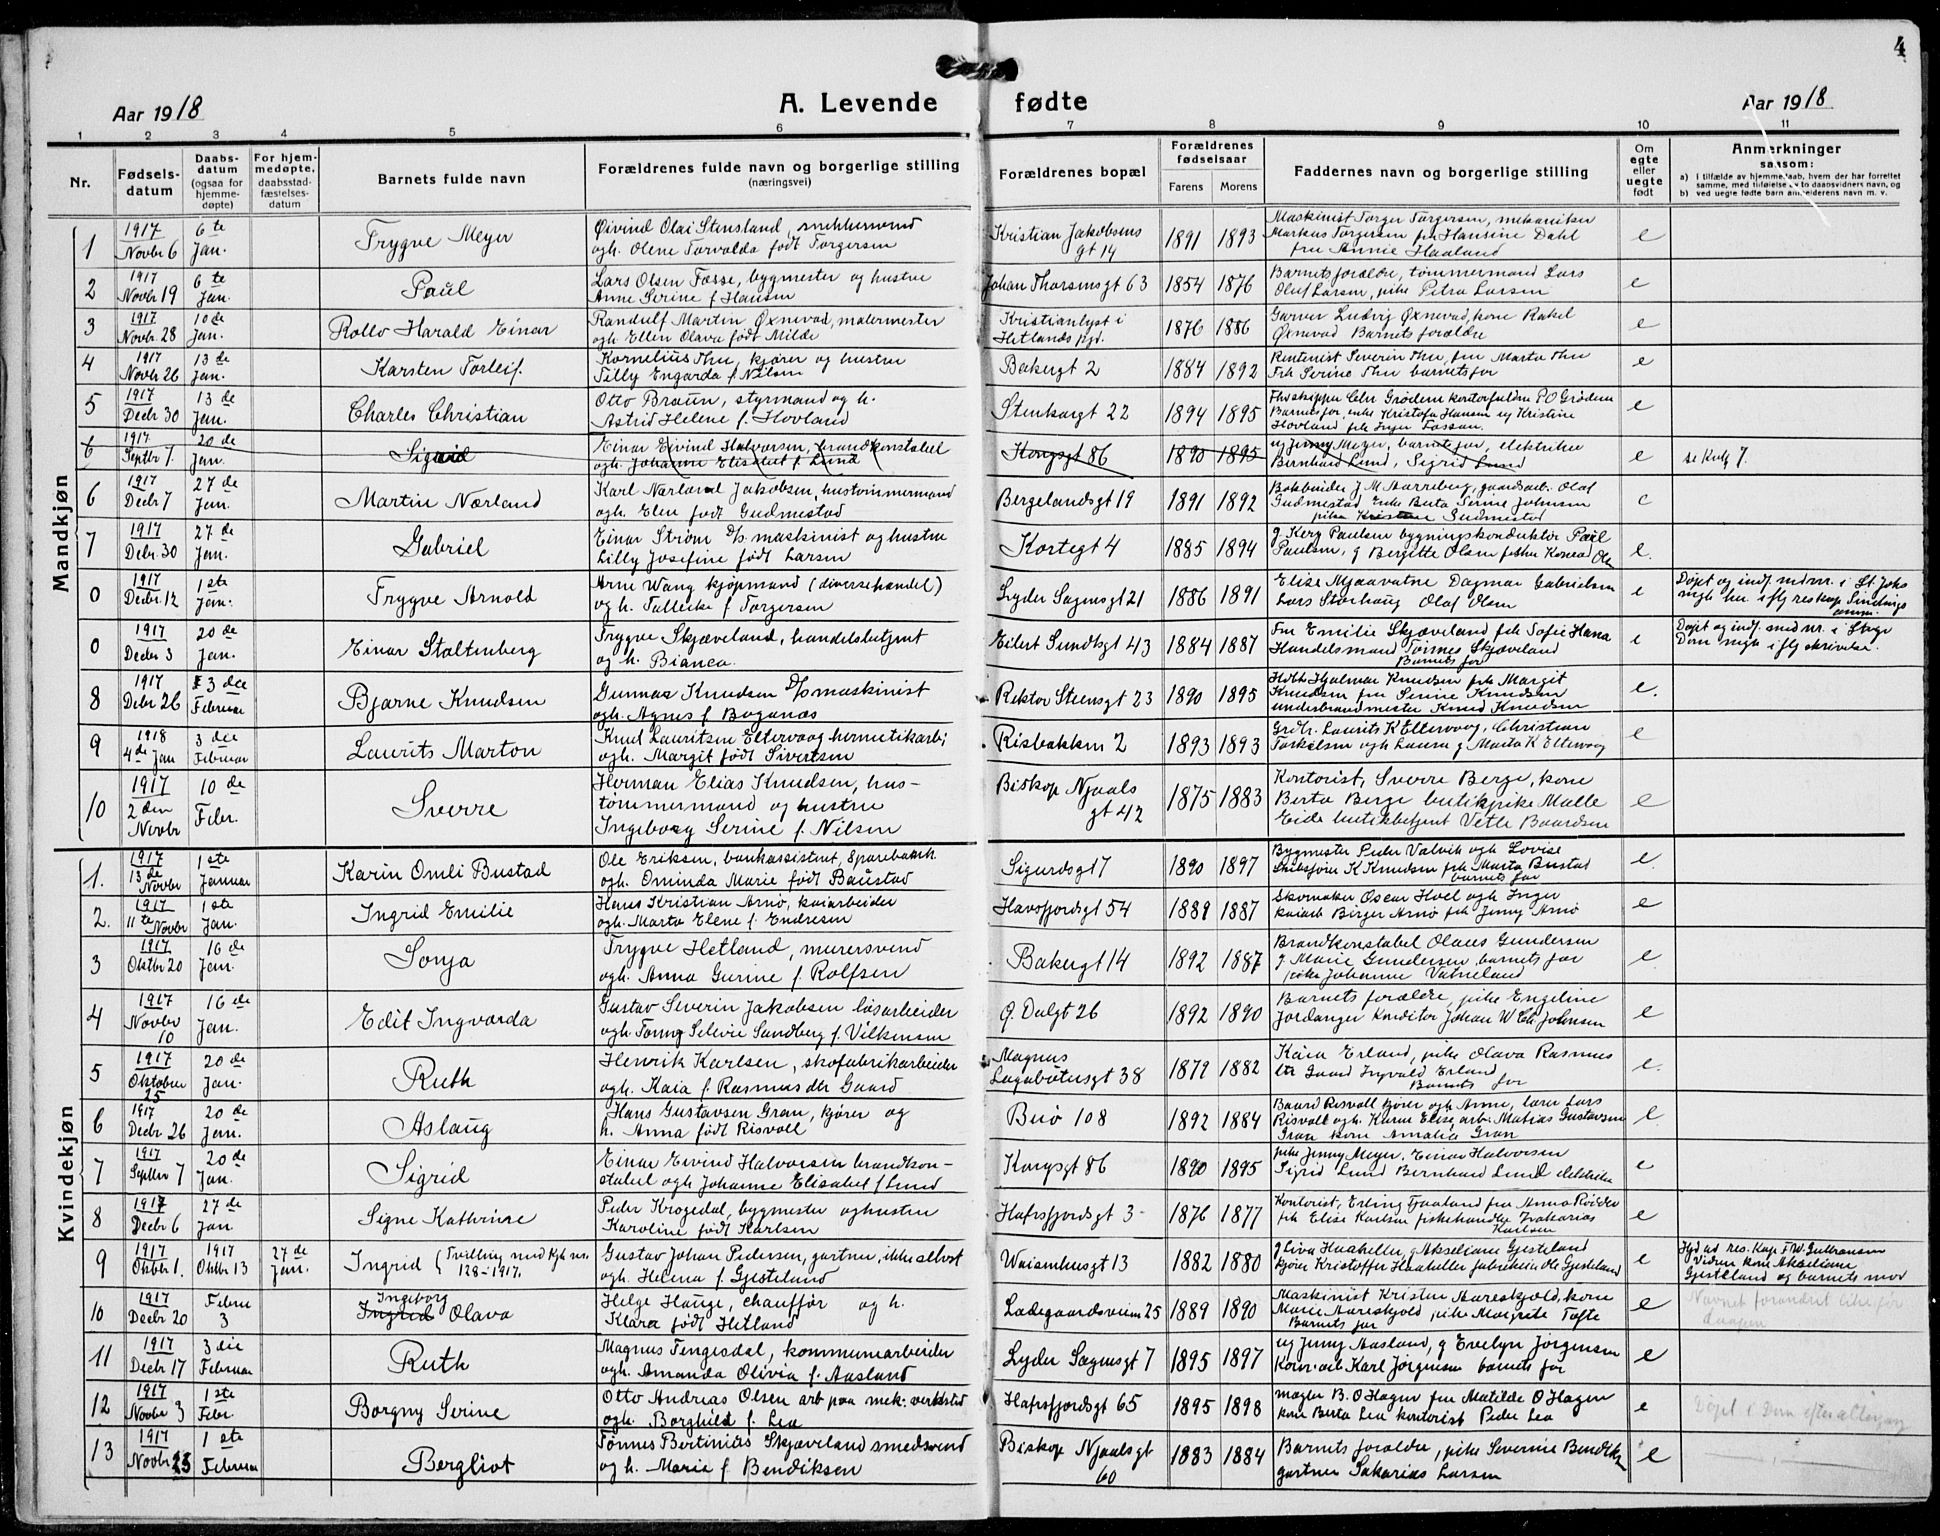 4
Aar 1918
A. Levende fødte
Aar 1918
1 2 3 4 5 6 7 8 9 10 11
Nr.
Fødsels-
datum
Daabs-
datum
(ogsaa for
hjemme-
døpte)
For hjem-
medøpte,
daabsstad-
fæstelses-
datum
Barnets fulde navn
Forældrenes fulde navn og borgerlige stilling
(næringsvei)
Forældrenes bopæl
Forældrenes
fødselsaar
Farens Morens
Faddernes navn og borgerlige stilling
Om
egte
eller
uegte
født
Anmerkninger
saasom:
a) i tilfælde av hjemmedaab, hvem der har forrettet
samme, med tilføielse av to daabsvidners navn, og
b) ved uegte fødte barn anmelderens navn m. v.
Mandkjøn
1 1917 Novbr 6 6te Jan. Trygve Meyer
Øivind Olai Stensland, snikkersvend
ogh. Olene Torvalda født Torgersen
Kristian Jakobsens
gt 14
1891 1893
Maskinist Torger Torgersen, mekaniker
Markus Torgersen frk Hansine Dahl
fru Annie Haaland
e
2 1917 Novbr 19 6te Jan. Paul
Lars Olsen Fosse, bygmester og hustru
Anne Serine f Hansen
Johan Thorsensgt 63
1854 1876
Barnets forældre, tømmermand Lars
Oluf Larsen, pike Petra Larsen
e
3 1917 Novbr. 28 10de Jan. Rollo Harald Einar
Randulf Martin Øxnevad, malermester
ogh Ellen Olava født Milde
Kristianlyst i
Hetlands pgd.
1876 1886
Garver Ludvig Øxnevad, kone Rakel
Øxnevad Barnets forældre
e
4 1917 Novbr 26 13de Jan. Karsten Torleif.
Kornelius Thu, kjører og hustru
Tilly Engarda f Nilsen
Bakergt 2
1884 1892
Rentenist Severin Thu, fru Marta Thu
Frk Serine Thu barnets far
e
5 1917 Decbr 30 13de Jan. Charles Christian
Otto Braun, styrmand og h.
Astrid Helene f. Hovland
Stenkargt 22
1894 1895
Fhv skipper Chr Grødem kontorfuldm P O Grødem
Barnets far, enke Kristofa Hansen ug Kristine
Hovland frk Inger Fossan.
e
6 1917. Septbr 7. 20de Jan. Sigrid
Einar Eivind Halvorsen, brandkonstabel
ogh. Johanne Elisabet f. Lund
Kongsgt 86
1890 1895
ug Jenny Meyer, barnets far, elektriker
Bernhard Lund, Sigrid Lund
e
se Kvk 7.
6 1917 Decbr 7 27de Jan. Martin Nærland
Karl Nærland Jakobsen, hustømmermand
ogh. Elen født Gudmestad
Bergelandsgt 19
1891 1892
Bokbinder J M Aarreberg, gaardsarb. Olaf
Gudmestad Enke Berta Serine Johnsen
pike Kristine Gudmestad
e
7 1917 Debr. 30 27de Jan. Gabriel
Einar Strøm D/s maskinist og hustru
Lilly Josefine født Larsen
Kortegt 4
1885 1894
g Kerg Paulsen bygningskonduktør Paul
Paulsen, g Bergitte Olsen fisker Konrad Olsen
e.
0 1917 Decbr. 12 1ste Jan. Trygve Arnold
Arne Wang kjøpmand (diversehandel)
og h. Talleike f Torgersen
Lyder Sagensgt 21
1886 1891
Elise Mjaavatne Dagmar Gabrielsen
Lars Storhaug Olaf Olsen
e
Døpt og indf. med nr. i St. Johs
mgh her iflg res kap Sindings
anm.
0 1917 Decbr 3 20de Jan. Einar Stoltenberg
Trygve Skjæveland, handelsbetjent
og h. Bianca.
Eilert Sundtsgt 43
1884 1887
Fru Emilie Skjæveland frk Sofie Hana
Handelsmand Tønnes Skjæveland
Barnets far
e
Døpt og indf. med nr. i Stvgr
Dom mgh iflg skrivelse.
8 1917 Debr 26 3die Februar Bjarne Knudsen
Gunnar Knudsen D/s maskinist
ogh. Agnes f Boganæs
Rektor Steensgt 23
1890 1895
Hvbt Hjalmar Knudsen frk Margit
Knudsen fru Serine Knudsen
underbrandmester Knud Knudsen
e.
9 1918 4de Jan 3die Februar Laurits Marton
Knud Lauritsen Eltervaag hermetikarb;
ogh. Margit født Sivertsen
Risbakken 2
1893 1893
Grdbr. Laurits K Eltervaag, Christian
Torkelsen ogh Laura g Marta K Eltervaag
e
10 1917 2den Novbr 10de Febr. Sverre
Herman Elias Knudsen, hus-
tømmermand og hustru
Ingeborg Serine f. Nilsen
Biskop Njaals
gt 42
1875 1883
Kontorist, Sverre Berge, kone
Berta Berge butikpike Malle
Eide butikbetjent Vetle Baardsen
e
Kvindekjøn
1. 1917 13de Novbr 1ste Januar Karin Omli Bustad
Ole Eriksen, bankassistent, Sparebank.
ogh. Ominda Marie født Baustad
Sigurdsgt 7
1890 1897
Bygmester Peder Valvik ogh Lovise
Skibsfører K Knudsen frk Marta Bustad
barnets far
e
2. 1917 11te Novbr 1ste Jan. Ingrid Emilie
Hans Kristian Arnø, kaiarbeider
ogh. Marta Elene f. Endresen
Havsfjordsgt 54
1889 1887
Skomaker Oscar Hoel ogh Inger
kaiarb Birger Arnø frk Jenny Arnø
e
3 1917 Oktbr 20 16de Jan. Sonja
Trygve Hetland, murersvend
ogh. Anna Gurine f. Rolfsen
Bakergt 14
1892 1887
Brandkonstabel Olaus Gundersen
g Marie Gundersen barnets far
pike Johanne Vatneland
e.
4 1917 Novbr 10 16de Jan. Edit Ingvarda
Gustav Severin Jakobsen løsarbeider
ogh Tomy Selvie Sandberg f. Vilkensen
G. Dalgt 26
1892 1890
Barnets forældre, pike Engeline
Jordanger Konditor Johan W Chr Johnsen
e
5 1917 Oktober 25 20de Jan. Ruth
Henrik Karlsen, skofabrikarbeider
ogh. Kaia f Rasmusdtr Gaard
Magnus
Lagabøtersgt 38
1879 1882
Kaia Erland, pike Olava Rasmus
dtr Gaard Ingvald Erland
Barnets far
e.
6 1917 Decbr 26 20de Jan. Aslaug
Hans Gustavsen Gran, kjører og
h. Anna født Risvoll
Buø 108
1892 1884
Baard Risvoll kjører ogh Anne, lærer Lars
Risvoll ogh. Karen Elise, arb. Matias Gustavsen
Gran kone Amalia Gran
e.
7 1917 Septbr 7 20de Jan. Sigrid
Einar Eivind Halvorsen brandkon-
stabel ogh Johanne Elisabet f Lund
Kongsgt 86
1890 1895
pike Jenny Meyer, Einar Halvorsen
Sigrid Lund Bernhard Lund elektriker
e
8 1917 Decbr 6 27de Jan Signe Kathrine
Peder Krogedal, bygmester og hustru
Karoline født Karlsen
Hafrsfjordsgt 3
1876 1877
Kontorist, Erling Tjaaland fru Anna Rødder
frk Elise Karlsen fiskehandler Zakarias
Karlsen
e
9 1917 Oktbr 1. 1917 Oktbr 13 27de Jan. Ingrid (Tvilling med Kjk nr.
128-1917.
Gustav Johan Pedersen, gartner, ikke altvost
ogh. Helena f. Gjesteland
Waisenhusgt 13
1882 1880
g Liva Haaheller, g Akseliane Gjesteland
kjører Kristoffer Haaheller fabrikeier Ole Gjesteland
e
Hjd ad res. Kap F W. Gulbransen
Vidner kone Akseliane
Gjesteland og barnets mor
10 1917 Decbr 20 Febru 3 Ingeborg
Ingrid Olava
Helge Hauge, chauffør og h.
Klara født Hetland
Ladegaardsveien 25
1889 1890
Maskinist Kristen Aareskjold, kone
Marie Aareskjold, pike Margrete Tofte
Barnets far
e
Navnet forandret like før
daapen
11 1917 Decbr 17 3die Februar Ruth
Magnus Tengesdal, kommunearbeider
ogh. Amanda Olivia f. Aasland
Lyder Sagensgt 7
1895 1897
ug Jenny Aasland, g Evelyn Jørgensen
Kom-arb Karl Jørgensen barnets far
e
12 1917 Novbr 3 1ste Febr. Borgny Serine
Otto Andreas Olsen arb paa mek. verksted
ogh. Borghild f. Lea
Hafrsfjordsgt 65
1895 1898
Mægler B. O Hagen fru Matilde O Hagen
kone Berta Lea kontorist Peder Lea
e
Døpt i Dom efter altergang
13 1917 Novbr 25 1ste Februar Bergliot
Tønnes Bertinius Skjæveland smedsvend
og h. Marie f Bendiksen
Biskop Njaalsgt
60
1883 1884
Barnets forældre, pike Severine Bendiksen
gartner Sakarias Larsen
e